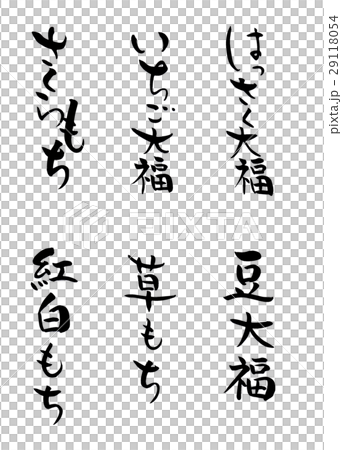 はっさく大福
いちご大福
さくらもち
豆大福
草もち
紅白もち
PIXTA
29118054